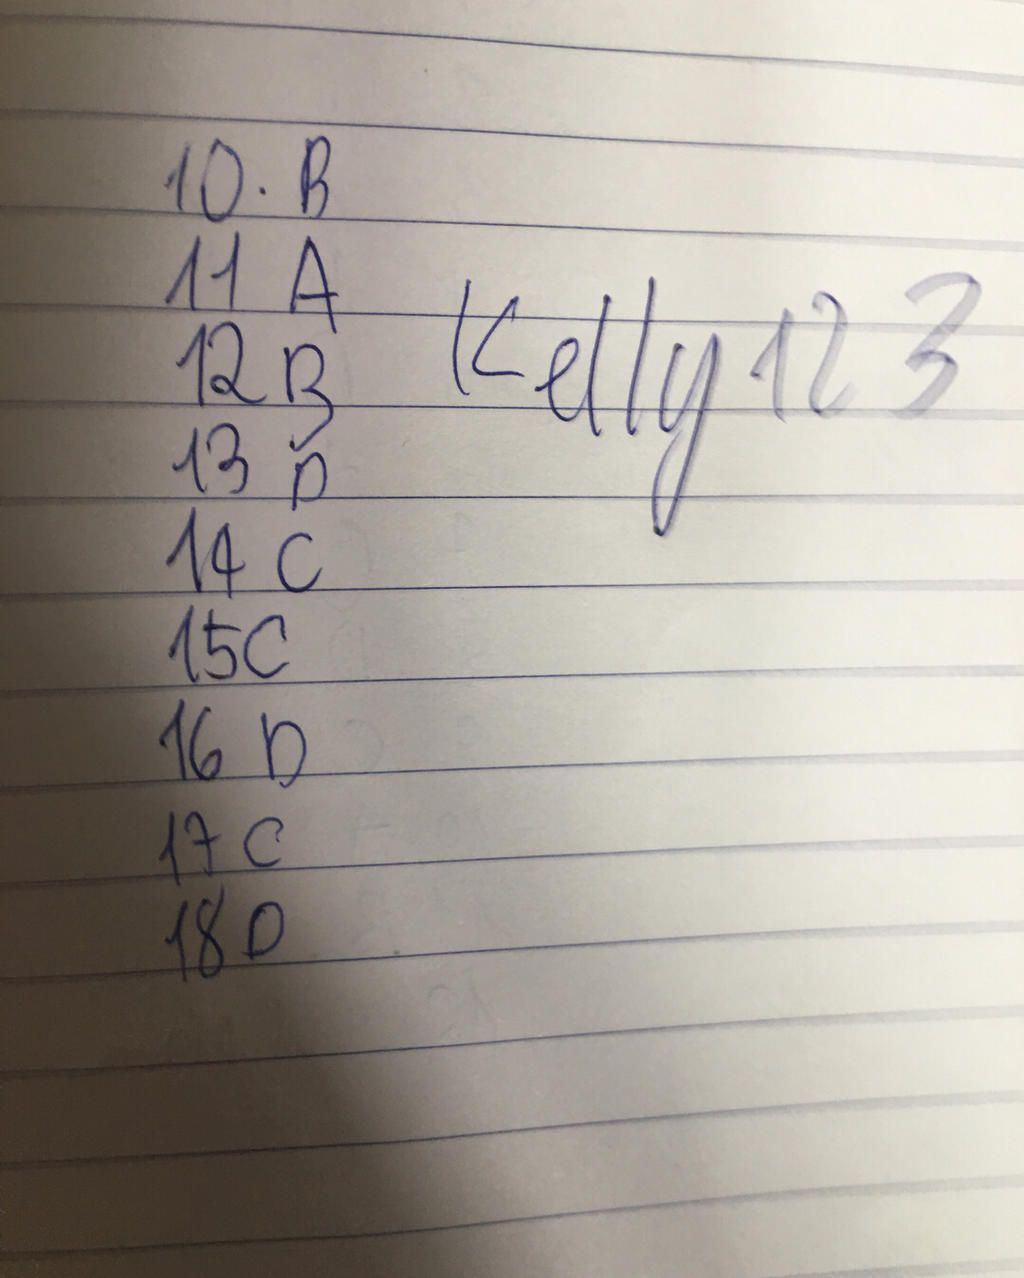 10. B
11 A
12 B
13 D
14 C
15 C
16 D
17 C
18 D
Kelly 123